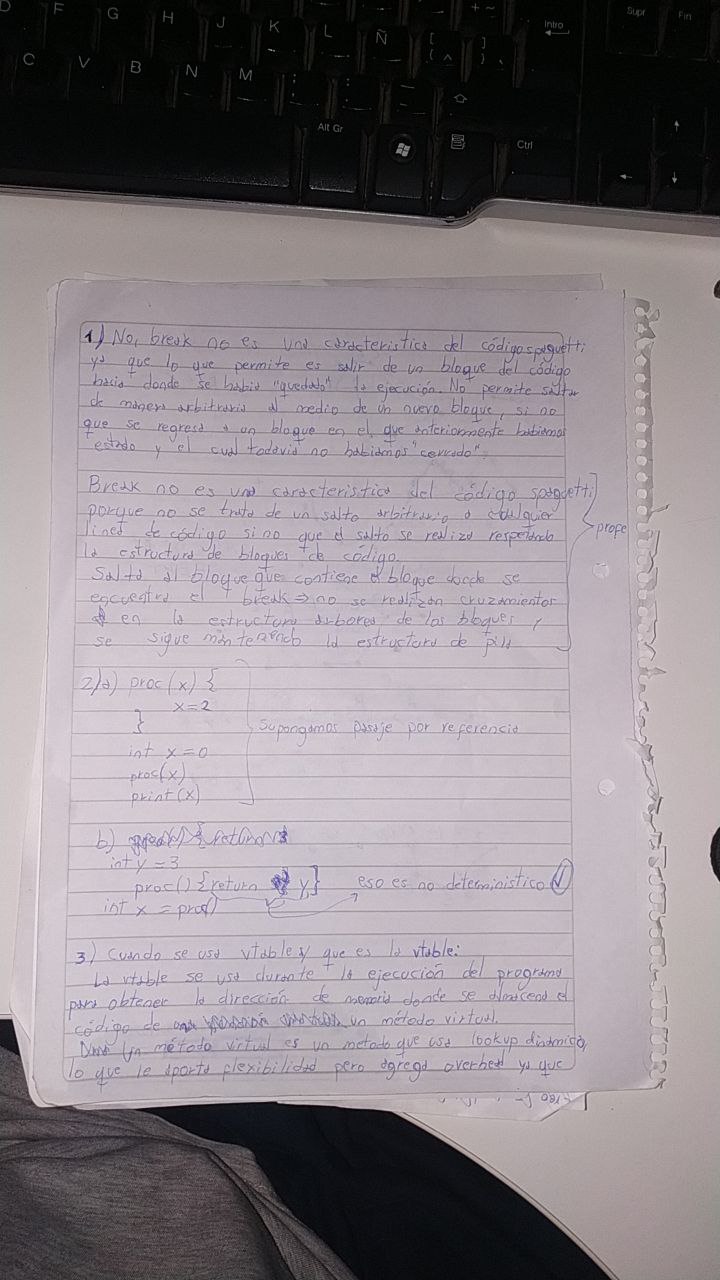 D F G H J K L Ñ [ { ^ ] } + ~ Intro Supr Fin
C V B N M ; , : . _ -
Alt Gr Ctrl
1) No, break no es una caracteristica del código spaguetti
ya que lo que permite es salir de un bloque del código
hacia donde se habia "quedado" la ejecución. No permite saltar
de manera arbitraria al medio de un nuevo bloque, si no
que se regresa a un bloque en el que anteriormente habiamos
estado y el cual todavia no habiamos "cerrado".
Break no es una caracteristica del código spaguetti
porque no se trata de un salto arbitrario a cualquier
linea de código si no que el salto se realiza respetando
la estructura de bloques de código.
Salta al bloque que contiene el bloque donde se
encuentra el break ⇒ no se realizan cruzamientos
en la estructura arborea de los bloques,
se sigue manteniendo la estructura de pila
profe
2) a) proc(x) {
x=2
}
int x = 0
proc(x)
print(x)
supongamos pasaje por referencia
b)
int y = 3
proc() { return y }
int x = proc()
eso es no deterministico ✓
3) Cuando se usa vtable y que es la vtable:
La vtable se usa durante la ejecución del programa
para obtener la dirección de memoria donde se almacena el
código de un método virtual.
Un método virtual es un metodo que usa lookup dinámico,
lo que le aporta flexibilidad pero agrega overhead ya que